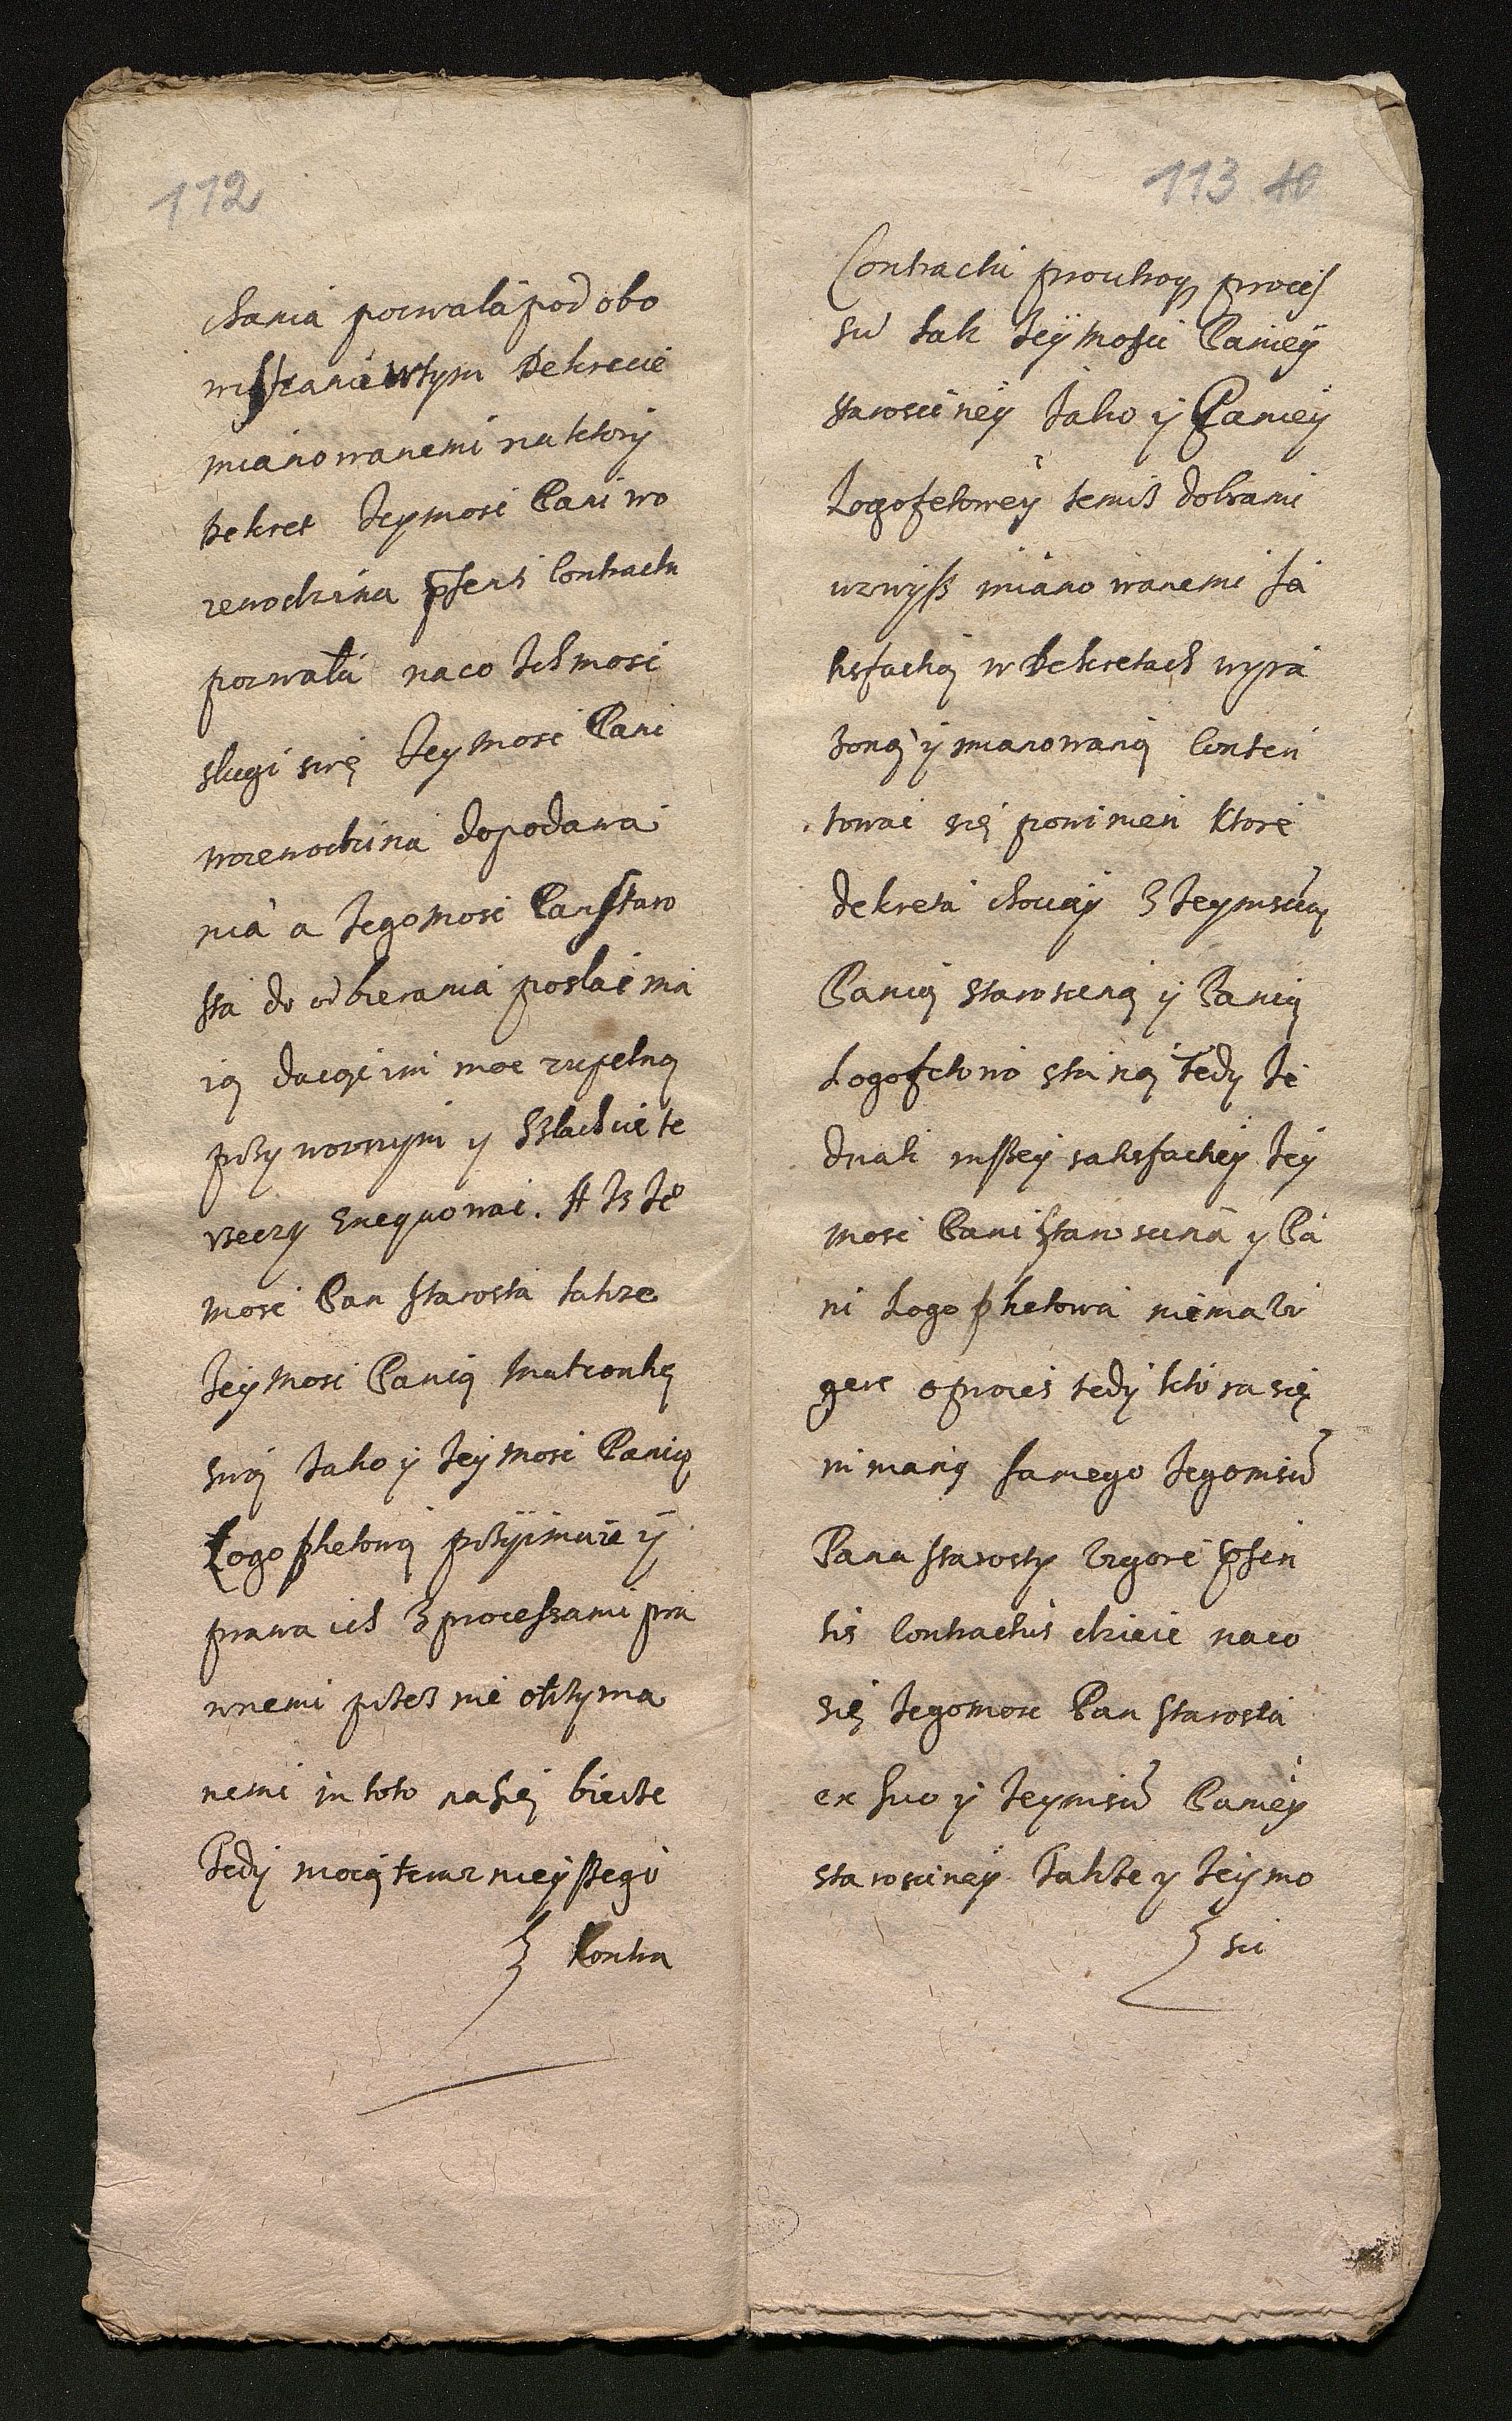 112
chania pozwala pod obo
wiązanie w tym Dekrecie
mianowanemi na ktory
Dekret Jeymosć Pani wo
iewodzina pñsenti Contractu
pozwala na co Jchmosć
slugi swę Jeymosć Pani
woiewodzina do podawa
nia a Jegomosć Pan Staro
sta do odbierania poslać ma
ią daiąc im moc zupełną
przy woznym y szlachcie te
rzeczy exequowac. A Js Je°
mosć Pan Starosta takze
Jeymosć Panią małzonkę
swą Jako y Jeymosć Panią
Logophetową przyimuie y
prawa ich z processami pra
wnemi przez nie otrzyma
nemi in toto na się bierze
Tedy mocą teraznieyszego
Contra
113 40
Contractu utroq proces
su tak Jeymosci Paniey
Starosciney Jako y Paniey
Logofetowey temiz dobrami
wzwysz mianowanemi sa
tisfactią w Dekretach wyra
zoną y mianowaną conten
towac się powinien ktore
dekreta chociay z Jeymscią
Panią Starosciną y Panią
Logofetową staną Tedy Je
dnak inszey satisfactiey Jey
mosć Pani Staroscina y Pa
ni Logophetowa nie ma
oprocz tedy ktora się
mianą samego Jegomsci
Pana Starosty zgore pñsen
tis Contractus dzieie na co
się Jegomosć Pan Starosta
ex suo y Jeymsci Paniey
Starosciney Takze y Jeymo
sci